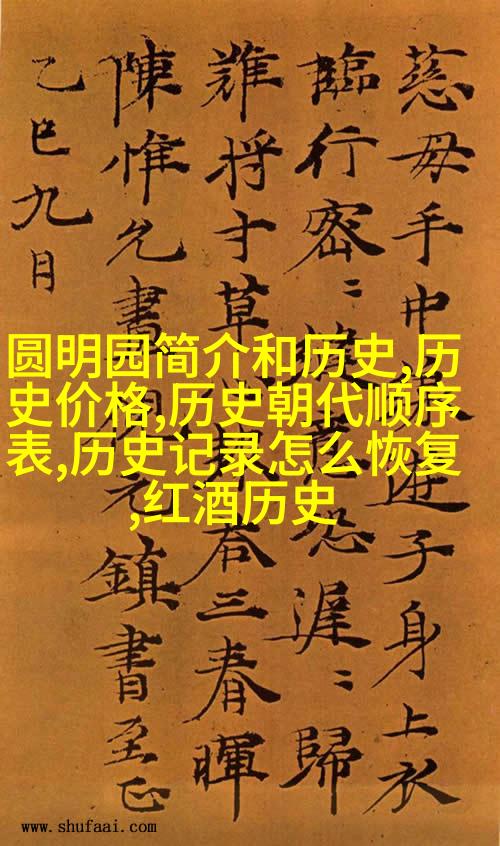 慈母手中遊子身上衣
臨行密:恐遲:歸
難將寸草答三春暉
陳惟允書鎮書至正
乙巳九月
圆明园简介和历史,历
史价格,历史朝代顺序
表,历史记录怎么恢复
,红酒历史
www.shufaai.com